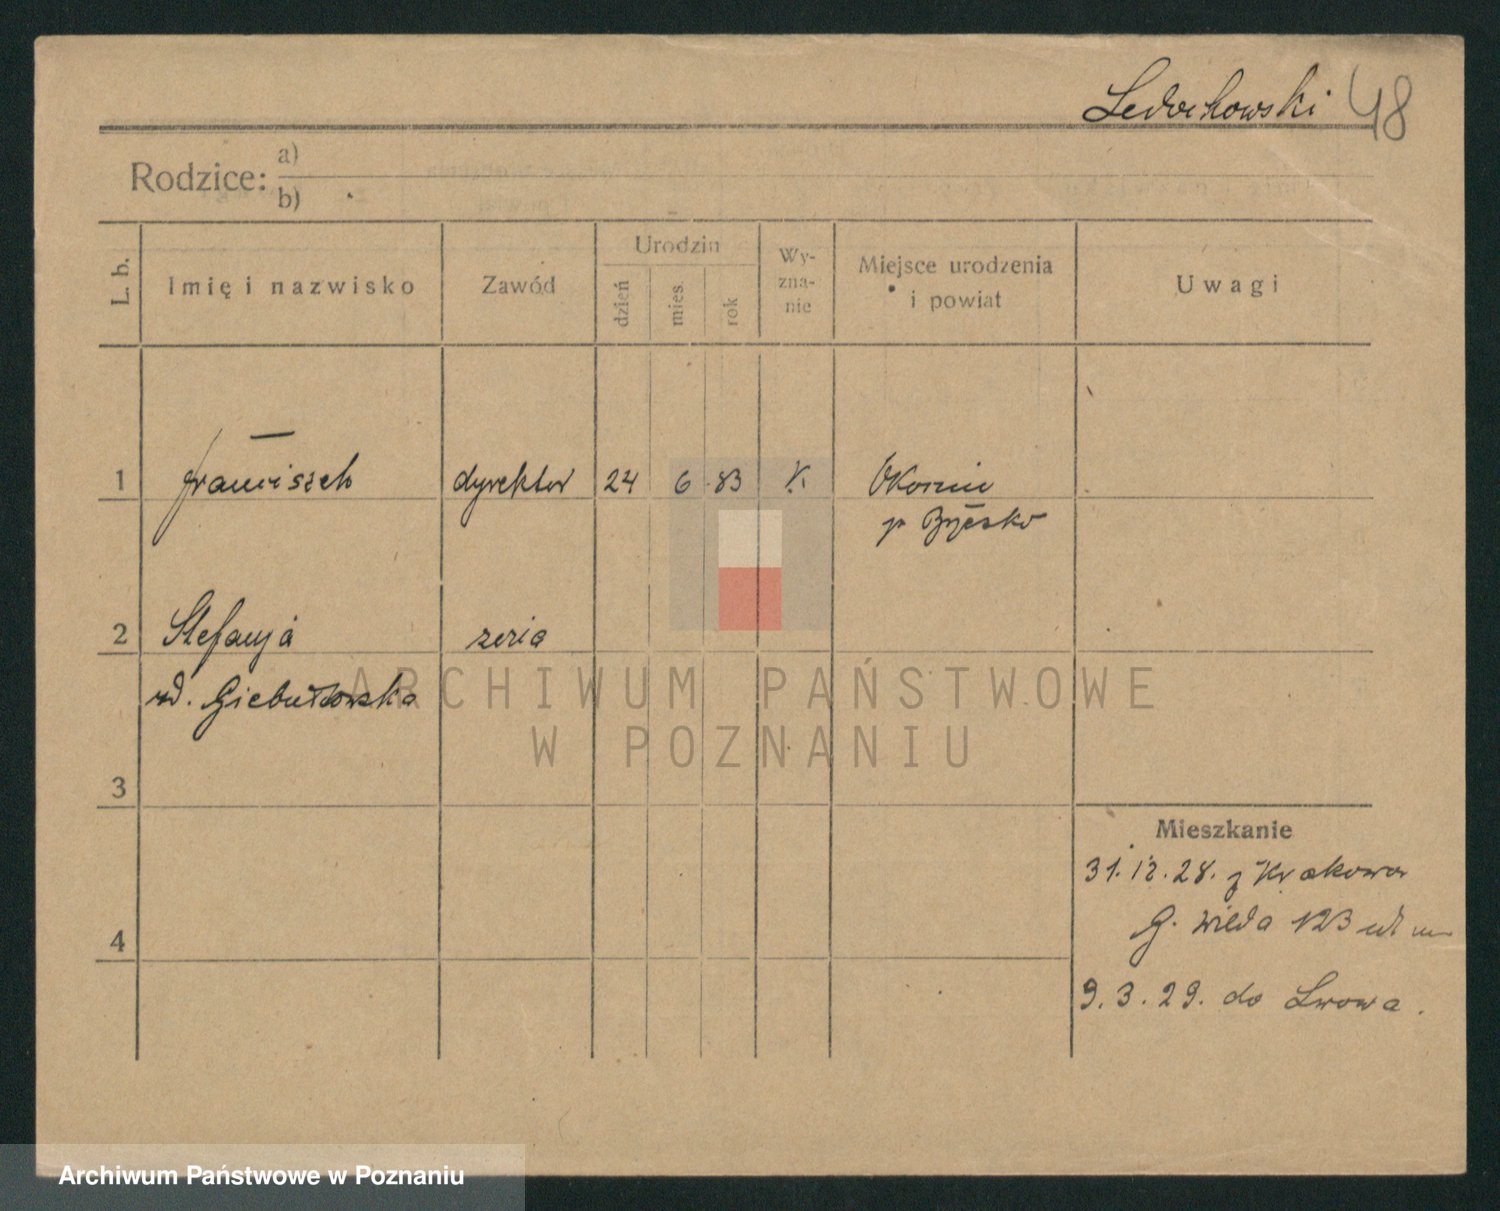 Ledochowski 48
Rodzice: a)
b)
L. b.
Imię i nazwisko
Zawód
Urodzin
dzień
mies.
rok
Wy-
zna-
nie
Miejsce urodzenia
i powiat
Uwagi
1 Franciszek dyrektor 24 6 83 K. Okocim
p Brzesko
2 Stefanja żona
zd. Giebułtowska
3
4
Mieszkanie
31.12.28. z Krakowa
G. Wilda 123
9.3.29. do Lwowa.
ARCHIWUM PAŃSTWOWE
W POZNANIU
Archiwum Państwowe w Poznaniu